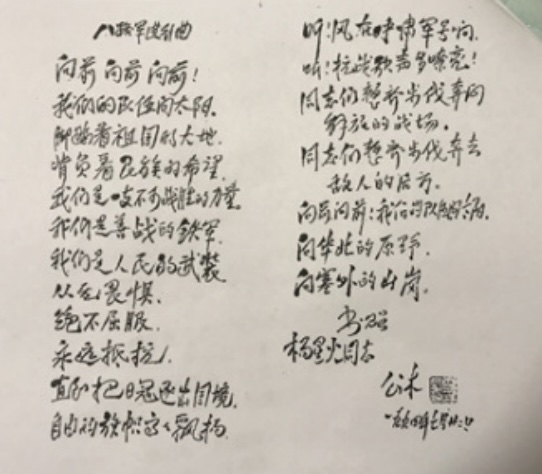 八路军进行曲
向前 向前 向前！
我们的队伍向太阳，
脚踏着祖国的大地，
背负着民族的希望，
我们是一支不可战胜的力量。
我们是善战的铁军，
我们是人民的武装，
从无畏惧，
绝不屈服，
永远抵抗，
直到把日寇逐出国境，
自由的旗帜高高飘扬。
听！风在呼啸军号响，
听！抗战歌声多嘹亮！
同志们整齐步伐奔向
解放的战场，
同志们整齐步伐奔去
敌人的后方，
向前向前！我们的队伍向太阳，
向华北的原野，
向塞外的山岗。
书赠
杨星火同志
公木